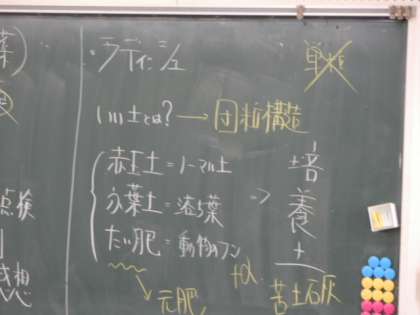 ・ラディッシュ
単粒
いい土とは?→団粒構造
赤玉土=ノーマル土
腐葉土=落ち葉
たい肥=動物のフン
培養土
+α
元肥
苦土石灰
菜)
点検
感想